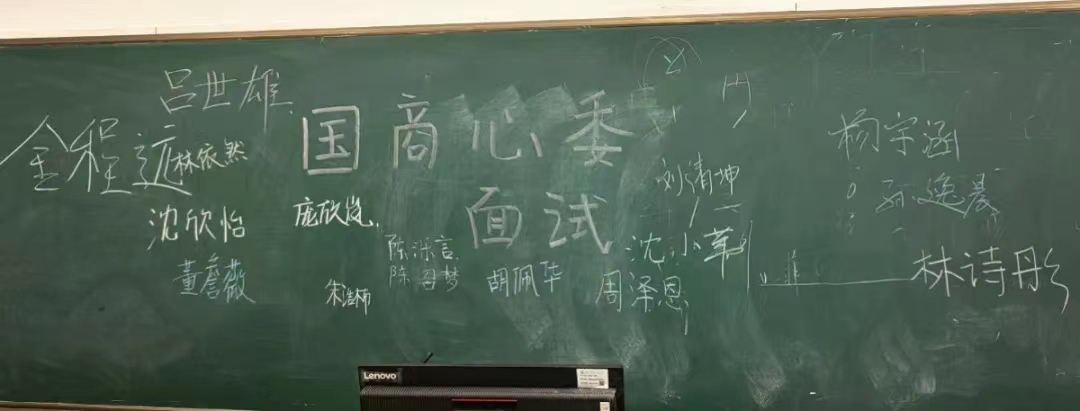 吕世雄
国商心委
面试
金程远
林依然
沈欣怡
庞欣岚
董詹薇
陈泺言
陈阁梦
胡佩华
周泽恩
沈小苇
刘清坤
杨宇涵
孙逸晨
林诗彤
Lenovo